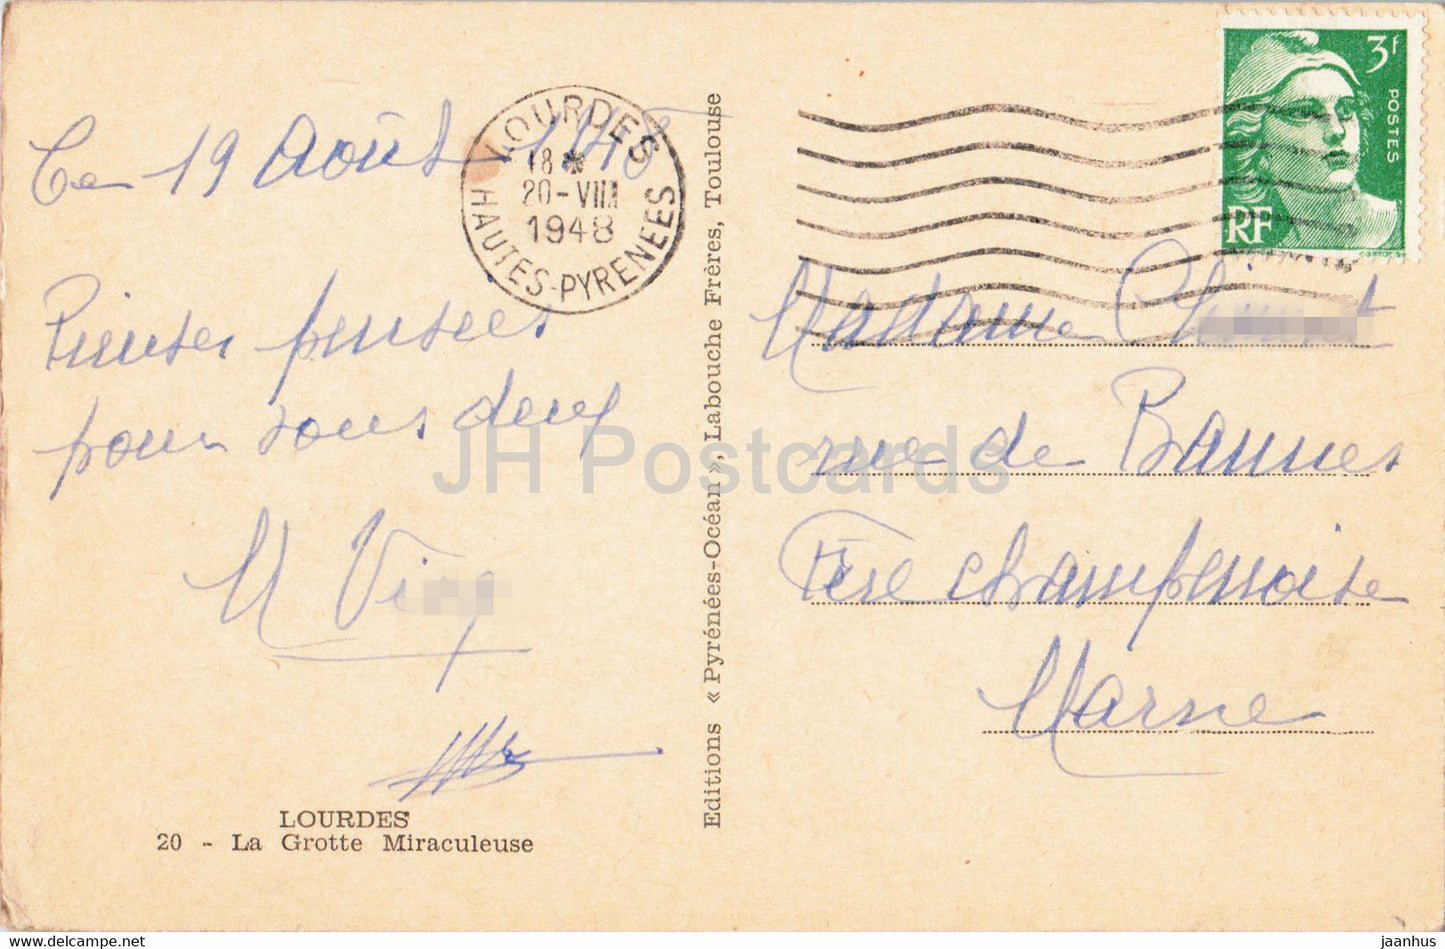 Ce 19 Août 1948
LOURDES
18 *
20-VIII
1948
HAUTES-PYRENEES
3f
POSTES
RF
Pieuses pensées
pour vous deux
Madame
rue de Bannes
Fère champenoise
Marne
LOURDES
20 - La Grotte Miraculeuse
Editions « Pyrénées-Océan », Labouche Frères, Toulouse
JH Postcards
eu.jhpostcards.net
jaanhus